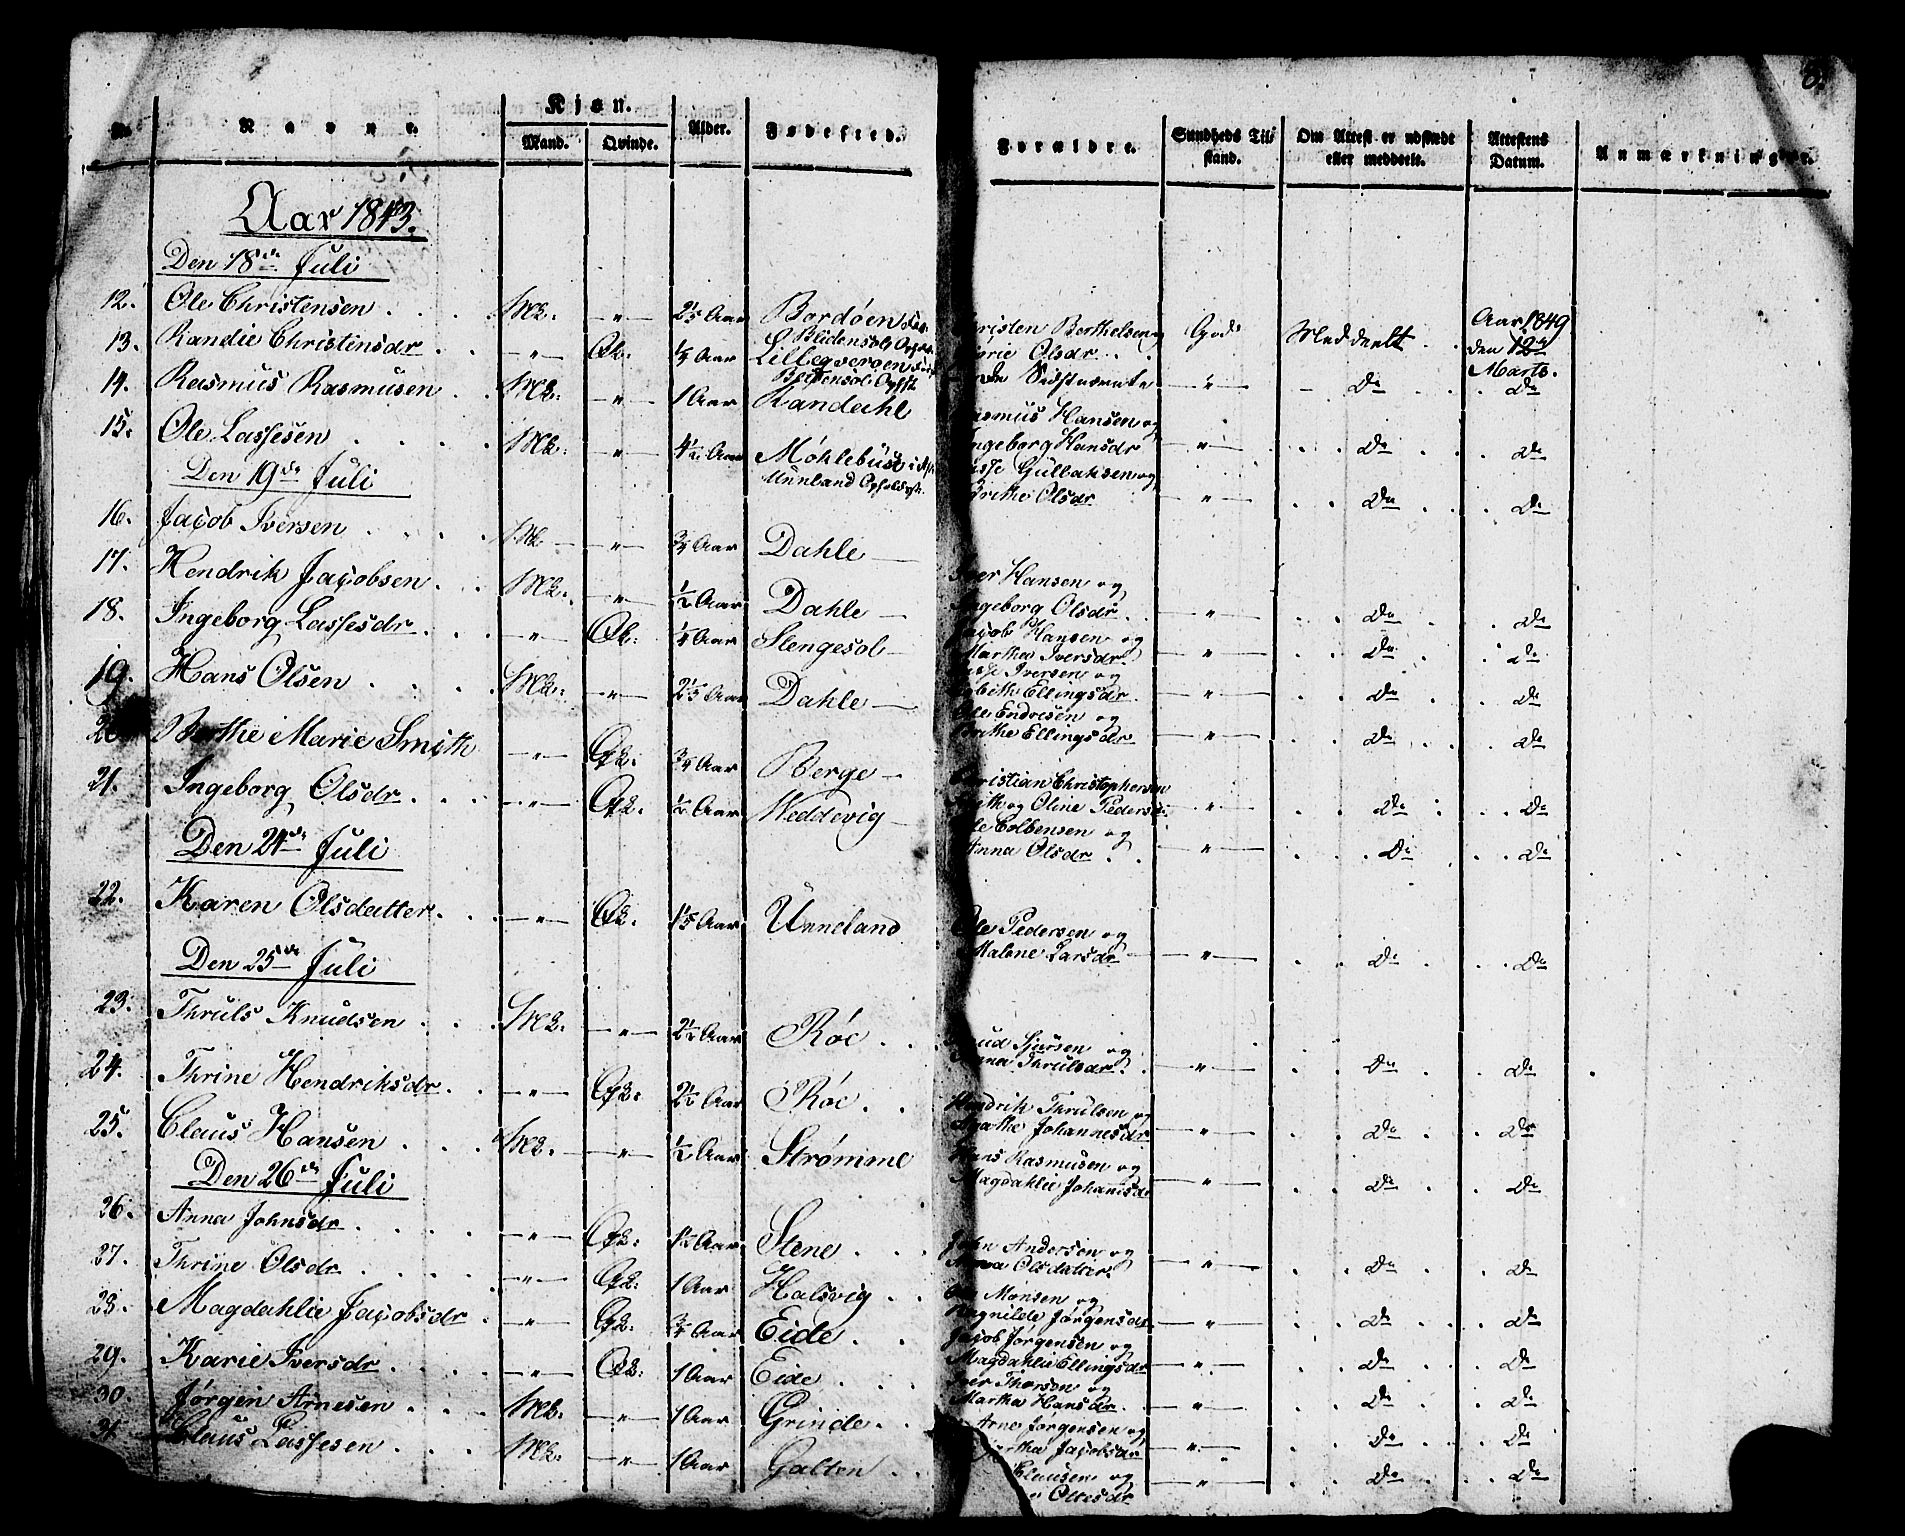 8.
No. Navne. Kjøn. Mand. Qvinde. Alder. Fødested.
Forældre. Sundheds Tilstand. Om Attest er udstædt eller meddeelt. Attestens Datum. Anmærkninger.
Aar 1843.
Den 18de Juli
12. Ole Christensen Mk. — " — 2 1/3 Aar Bordøen
13. Randie Christinsdr — " — Qk. 1/3 Aar Lillegveroen
14. Rasmus Rasmusen Mk. — " — 1 Aar Randahl
15. Ole Lassesen Mk. — " — 4 1/2 Aar Møhlebust i
Unnland
Den 19de Juli
16. Jacob Iversen Mk. — " — 3/4 Aar Dahle
17. Hendrik Jacobsen Mk. — " — 1/2 Aar Dahle
18. Ingeborg Lassesdr — " — Qk. 1/4 Aar Slengesol
19. Hans Olsen Mk. — " — 2 1/3 Aar Dahle
20. Berthe Marie Smith — " — Qk. 3/4 Aar Berge
21. Ingeborg Olsdr — " — Qk. 1/2 Aar Weddevig
Den 24de Juli
22. Karen Olsdatter — " — Qk. 1 1/3 Aar Unneland
Den 25de Juli
23. Thruls Knudsen Mk. — " — 2 1/2 Aar Røe
24. Thrine Hendriksdr — " — Qk. 2 1/2 Aar Røe
25. Claus Hansen Mk. — " — 1/2 Aar Strømme
Den 26de Juli
26. Anna Johnsdr — " — Qk. 1 1/2 Aar Stene
27. Thrine Olsdr — " — Qk. 1 Aar Halsvig
28. Magdahlie Jacobsdr — " — Qk. 3/4 Aar Eide
29. Karie Iversdr — " — Qk. 1 Aar Eide
30. Jørgen Arnesen Mk. — " — 1 Aar Grinde
31. Claus Lassesen Mk. — " — 1 Aar Galten
Christen Berthelsen og God Meddeelt Aar 1849
Marie Olsdr den 12te
Marts.
De Sidstnævnte — " — Do Do
Rasmus Hansen og
Ingeborg Hansdr — " — Do Do
Lasse Gullaksen og
Brithe Olsdr — " — Do Do
Iver Hansen og
Ingeborg Olsdr — " — Do Do
Jacob Hansen og
Martha Iversdr — " — Do Do
Lasse Iversen og
Ellingsdr — " — Do Do
Ole Endresen og
Brithe Ellingsdr — " — Do Do
Christian Christophersen
Smith og Oline Pedersdr — " — Do Do
Ole Colbensen og
Anna Olsdr — " — Do Do
Ole Pedersen og
Malene Larsdr — " — Do Do
Knud Sjursen og
Anna Thrulsdr — " — Do Do
Hendrik Thrulsen og
Agathe Johannesdr — " — Do Do
Hans Rasmusen og
Magdahlie Johannisdr — " — Do Do
John Andersen og
Anna Olsdatter — " — Do Do
Ole Monsen og
Ragnilde Jørgensdr — " — Do Do
Jacob Jørgensen og
Magdahlie Ellingsdr — " — Do Do
Iver Thorsen og
Martha Hansdr — " — Do Do
Arne Jørgensen og
Jacobsdr — " — Do Do
Clausen og
Ottesdr — " — Do Do